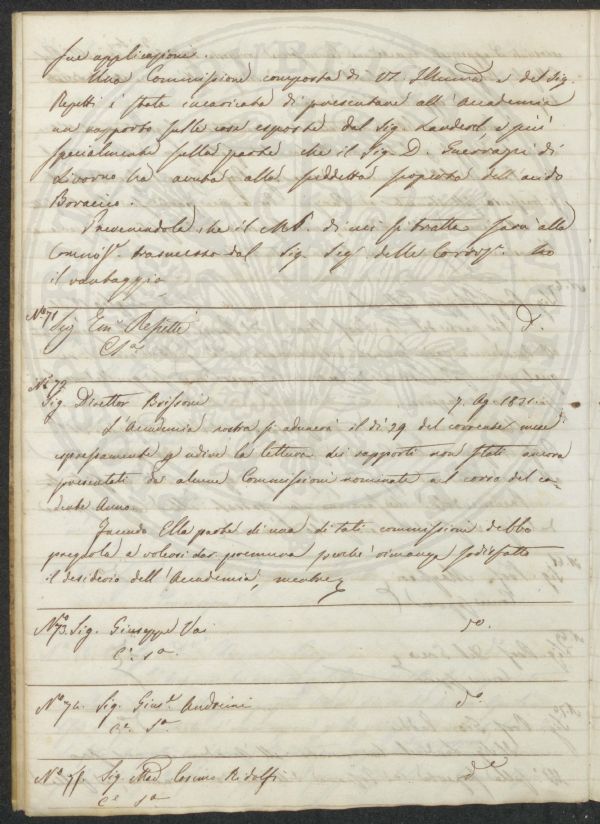 sue applicazione.
Una Commissione composta di VS. Illuma e del Sig.
Repetti è stata incaricata di presentare all'Accademia
un rapporto sulle cose esposte dal Sig. Larderel, e più
specialmente sulla parte che il Sig. D. Guerrazzi di
Livorno ha avuta alla suddetta scoperta dell'acido
Boracico.
Prevenendola che il MS. di cui si tratta sarà alla
trasmesso dal Sig. Seg. delle Corrisp. ho
il vantaggio
No 71
Sig Eml Repetti D.
Ca Sa
No 72
Sig. Direttor Brissoni 7. Ag. 1831.
L'Accademia nostra si adunerà il dì 29 del corrente mese
espressamente p udire la lettura dei rapporti non stati ancora
presentati da alcune Commissioni nominate nel corso del ca-
dente Anno.
Facendo Ella parte di una di tali commissioni debbo
pregarla a volersi dar premura perchè rimanga sodisfatto
il desiderio dell'Accademia, mentre
No 73. Sig. Giuseppe Vai do.
Ca Sa
No 74. Sig. Gius.e Andreini do
Ca Sa
No 75. Sig. Cosimo Ridolfi do
Ca Sa